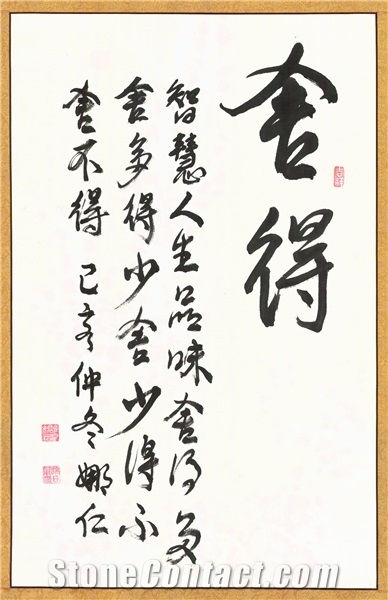 舍得
智慧人生品味舍得多
舍多得少舍少得不
舍不得 己亥仲冬娜仁
StoneContact.com